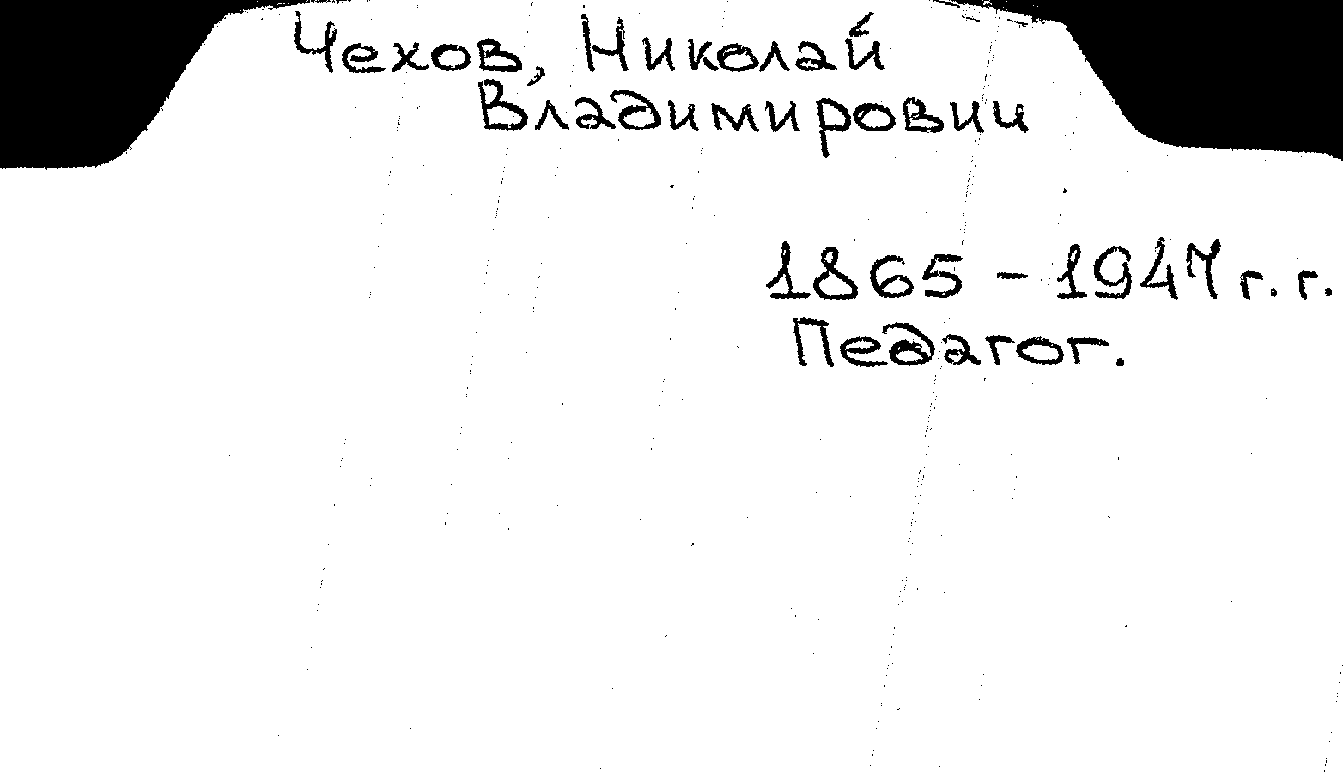 Чехов, Николай
Владимирович
1865 – 1947 г. г.
Педагог.